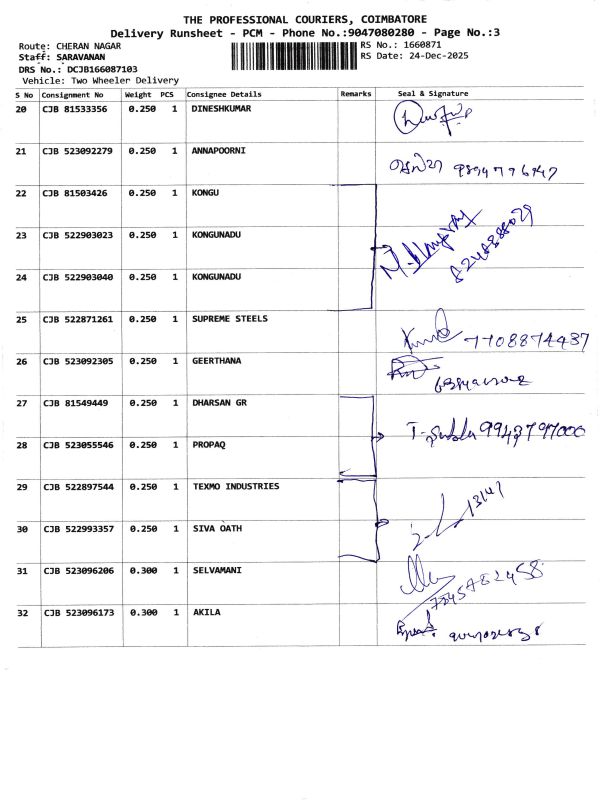 THE PROFESSIONAL COURIERS, COIMBATORE
Delivery Runsheet - PCM - Phone No.:9047080280 - Page No.:3
Route: CHERAN NAGAR RS No.: 1660871
Staff: SARAVANAN RS Date: 24-Dec-2025
DRS No.: DCJB166087103
Vehicle: Two Wheeler Delivery
S No Consignment No Weight PCS Consignee Details Remarks Seal & Signature
20 CJB 81533356 0.250 1 DINESHKUMAR
21 CJB 523092279 0.250 1 ANNAPOORNI
22 CJB 81503426 0.250 1 KONGU
23 CJB 522903023 0.250 1 KONGUNADU
24 CJB 522903040 0.250 1 KONGUNADU
25 CJB 522871261 0.250 1 SUPREME STEELS 7708874437
26 CJB 523092305 0.250 1 GEERTHANA
27 CJB 81549449 0.250 1 DHARSAN GR
28 CJB 523055546 0.250 1 PROPAQ
29 CJB 522897544 0.250 1 TEXMO INDUSTRIES
30 CJB 522993357 0.250 1 SIVA OATH
31 CJB 523096206 0.300 1 SELVAMANI
32 CJB 523096173 0.300 1 AKILA